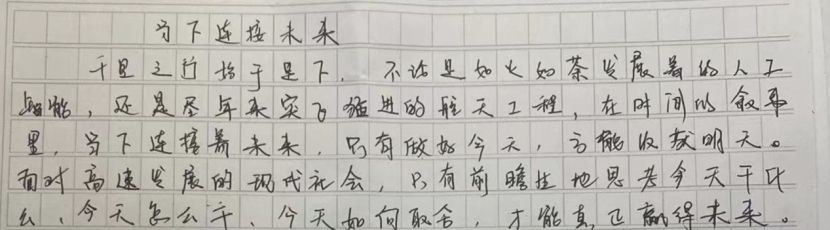 当下连接未来
千里之行始于足下，不论是如火如荼发展着的人工
智能，还是历年来突飞猛进的航天工程，在时间的叙事
里，当下连接着未来，只有做好今天，方能收获明天。
面对高速发展的现代社会，只有前瞻性地思考今天干什
么、今天怎么干、今天如何取舍，才能真正赢得未来。